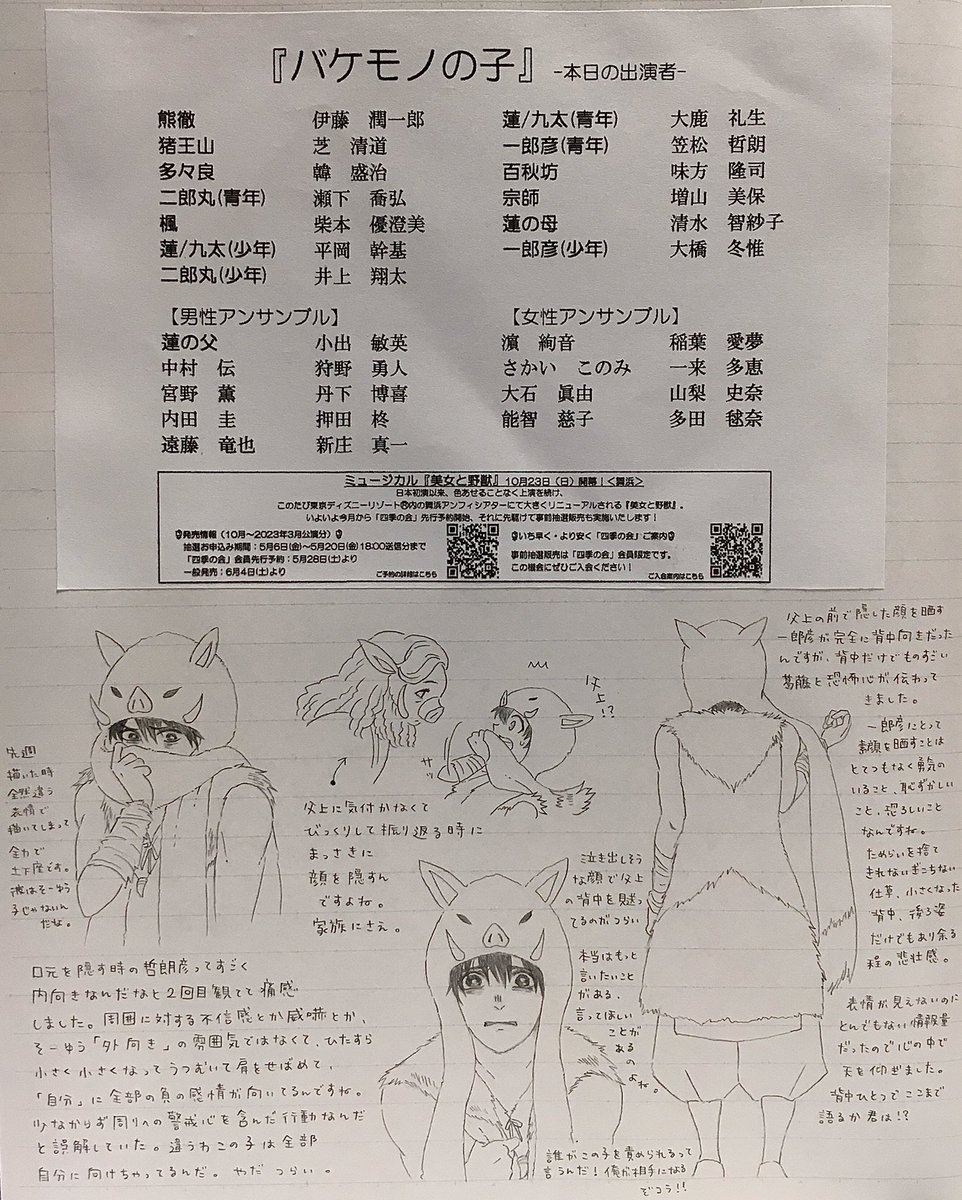 『バケモノの子』 -本日の出演者-
熊徹 伊藤 潤一郎 蓮/九太(青年) 大鹿 礼生
猪王山 芝 清道 一郎彦(青年) 笠松 哲朗
多々良 韓 盛治 百秋坊 味方 隆司
二郎丸(青年) 瀬下 喬弘 宗師 増山 美保
楓 柴本 優澄美 蓮の母 清水 智紗子
蓮/九太(少年) 平岡 幹基 一郎彦(少年) 大橋 冬惟
二郎丸(少年) 井上 翔太
【男性アンサンブル】 【女性アンサンブル】
蓮の父 小出 敏英 濵 絢音 稲葉 愛夢
中村 伝 狩野 勇人 さかい このみ 一来 多恵
宮野 薫 丹下 博喜 大石 眞由 山梨 史奈
内田 圭 押田 柊 能智 慈子 多田 毬奈
遠藤 竜也 新庄 真一
ミュージカル『美女と野獣』10月23日(日)開幕!<舞浜>
日本初演以来、色あせることなく上演を続け、
このたび東京ディズニーリゾート®内の舞浜アンフィシアターにて大きくリニューアルされる『美女と野獣』。
いよいよ今月から「四季の会」先行予約開始、それに先駆けて事前抽選販売も実施いたします!
発売情報(10月~2023年3月公演分)
抽選お申込み期間:5月6日(金)~5月20日(金)18:00送信分まで
「四季の会」会員先行予約:5月28日(土)より
一般発売:6月4日(土)より
ご予約の詳細はこちら
いち早く・より安く「四季の会」ご案内
事前抽選販売は「四季の会」会員限定です。
この機会にぜひご入会ください!
ご入会案内はこちら
先週
描いた時
全然違う
表情で
描いてしまって
全力で
土下座です。
彼はそーゆう
子じゃないん
だな。
父上!?
サッ
父上に気付かなくて
びっくりして振り返る時に
まっさきに
顔を隠すん
ですよね。
家族にさえ。
父上の前で隠した顔を晒す
一郎彦が完全に背中向きだった
んですが、背中だけでものすごい
葛藤と恐怖心が伝わって
きました。
一郎彦にとって
素顔を晒すことは
とてつもなく勇気の
いること、恥ずかしい
こと、恐ろしいこと
なんですね。
ためらいを捨て
きれないぎこちない
仕草、小さくなった
背中、後ろ姿
だけでもあり余る
程の悲壮感。
表情が見えないのに
とんでもない情報量
だったので心の中で
天を仰ぎました。
背中ひとつでここまで
語るか君は!?
泣き出しそう
な顔で父上
の背中を見送っ
てるのがつらい
本当はもっと
言いたいこと
がある、
言ってほしい
ことが
あるの
よね。
口元を隠す時の哲朗彦ってすごく
内向きなんだなと2回目観てて痛感
しました。周囲に対する不信感とか威嚇とか、
そーゆう「外向き」の雰囲気ではなくて、ひたすら
小さく小さくなってうつむいて肩をせばめて、
「自分」に全部の負の感情が向いてるんですね。
少なからず周りへの警戒心を含んだ行動なんだ
と誤解していた。違うわこの子は全部
自分に向けちゃってるんだ。やだ つらい。
誰がこの子を責められるって
言うんだ!俺が相手になる
ぞコラ!!